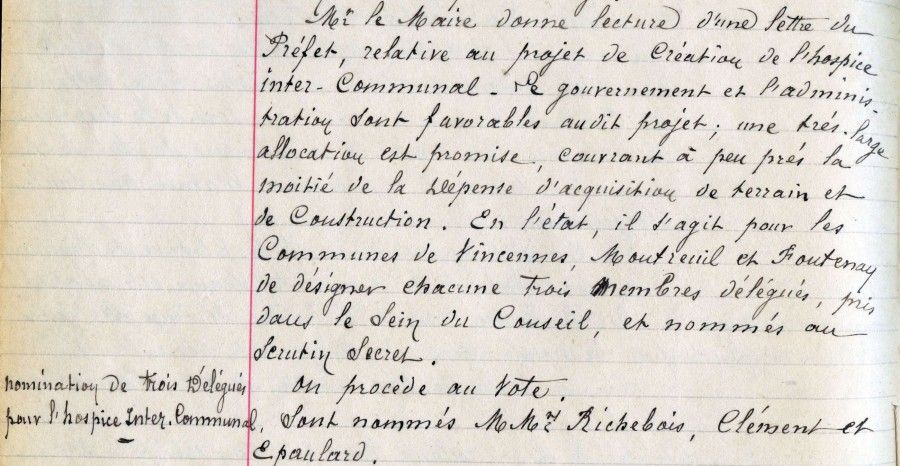 Mr le Maire donne lecture d'une lettre du
Préfet, relative au projet de Création de l'hospice
inter-Communal - Le gouvernement et l'adminis-
tration sont favorables audit projet; une très-large
allocation est promise, couvrant à peu près la
moitié de la Dépense d'acquisition de terrain et
de Construction. En l'état, il s'agit pour les
Communes de Vincennes, Montreuil et Fontenay
de désigner chacune trois Membres délégués, pris
dans le Sein du Conseil, et nommés au
Scrutin Secret.
nomination de trois Délégués
pour l'hospice Inter-Communal,
On procède au Vote.
Sont nommés MMrs Richebois, Clément et
Epaulard.